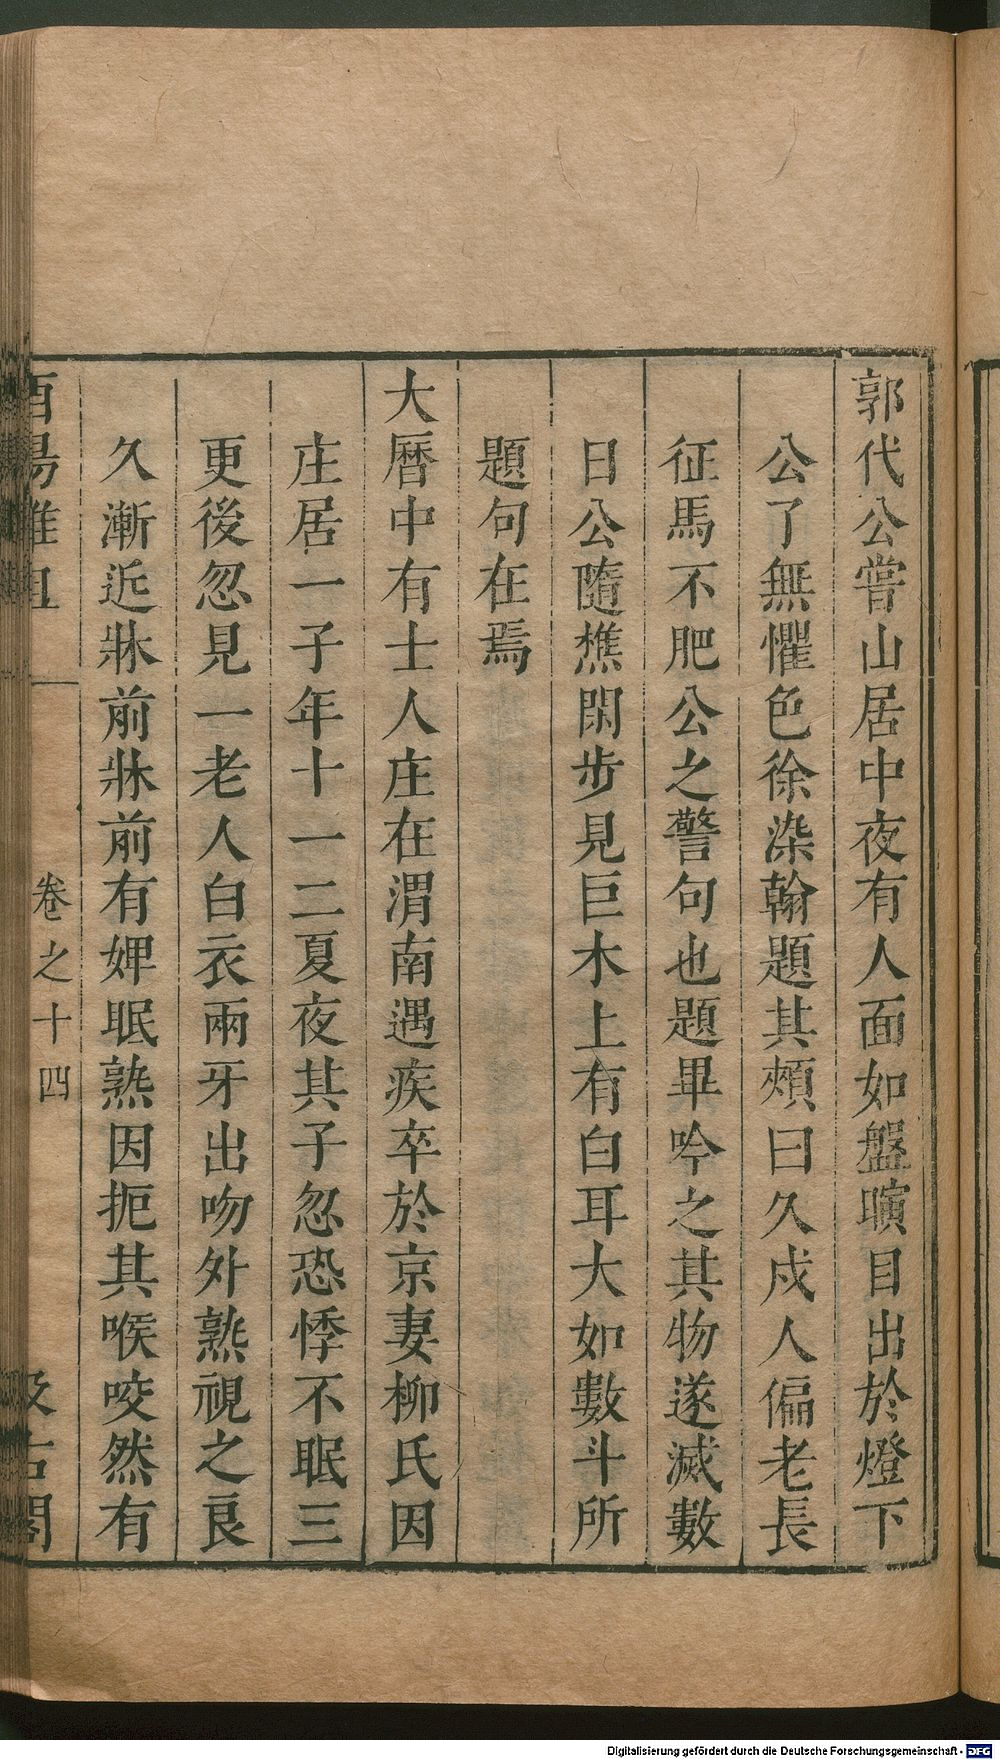 郭代公嘗山居中夜有人面如盤瞚目出於燈下
公了無懼色徐染翰題其頰曰久戍人偏老長
征馬不肥公之警句也題畢吟之其物遂滅數
日公隨樵閑步見巨木上有白耳大如數斗所
題句在焉
大曆中有士人庄在渭南遇疾卒於京妻柳氏因
庄居一子年十一二夏夜其子忽恐悸不眠三
更後忽見一老人白衣兩牙出吻外熟視之良
久漸近牀前牀前有婢眠熟因扼其喉咬然有
酉陽雜俎
卷之十四
汲古閣
Digitalisierung gefördert durch die Deutsche Forschungsgemeinschaft - DFG